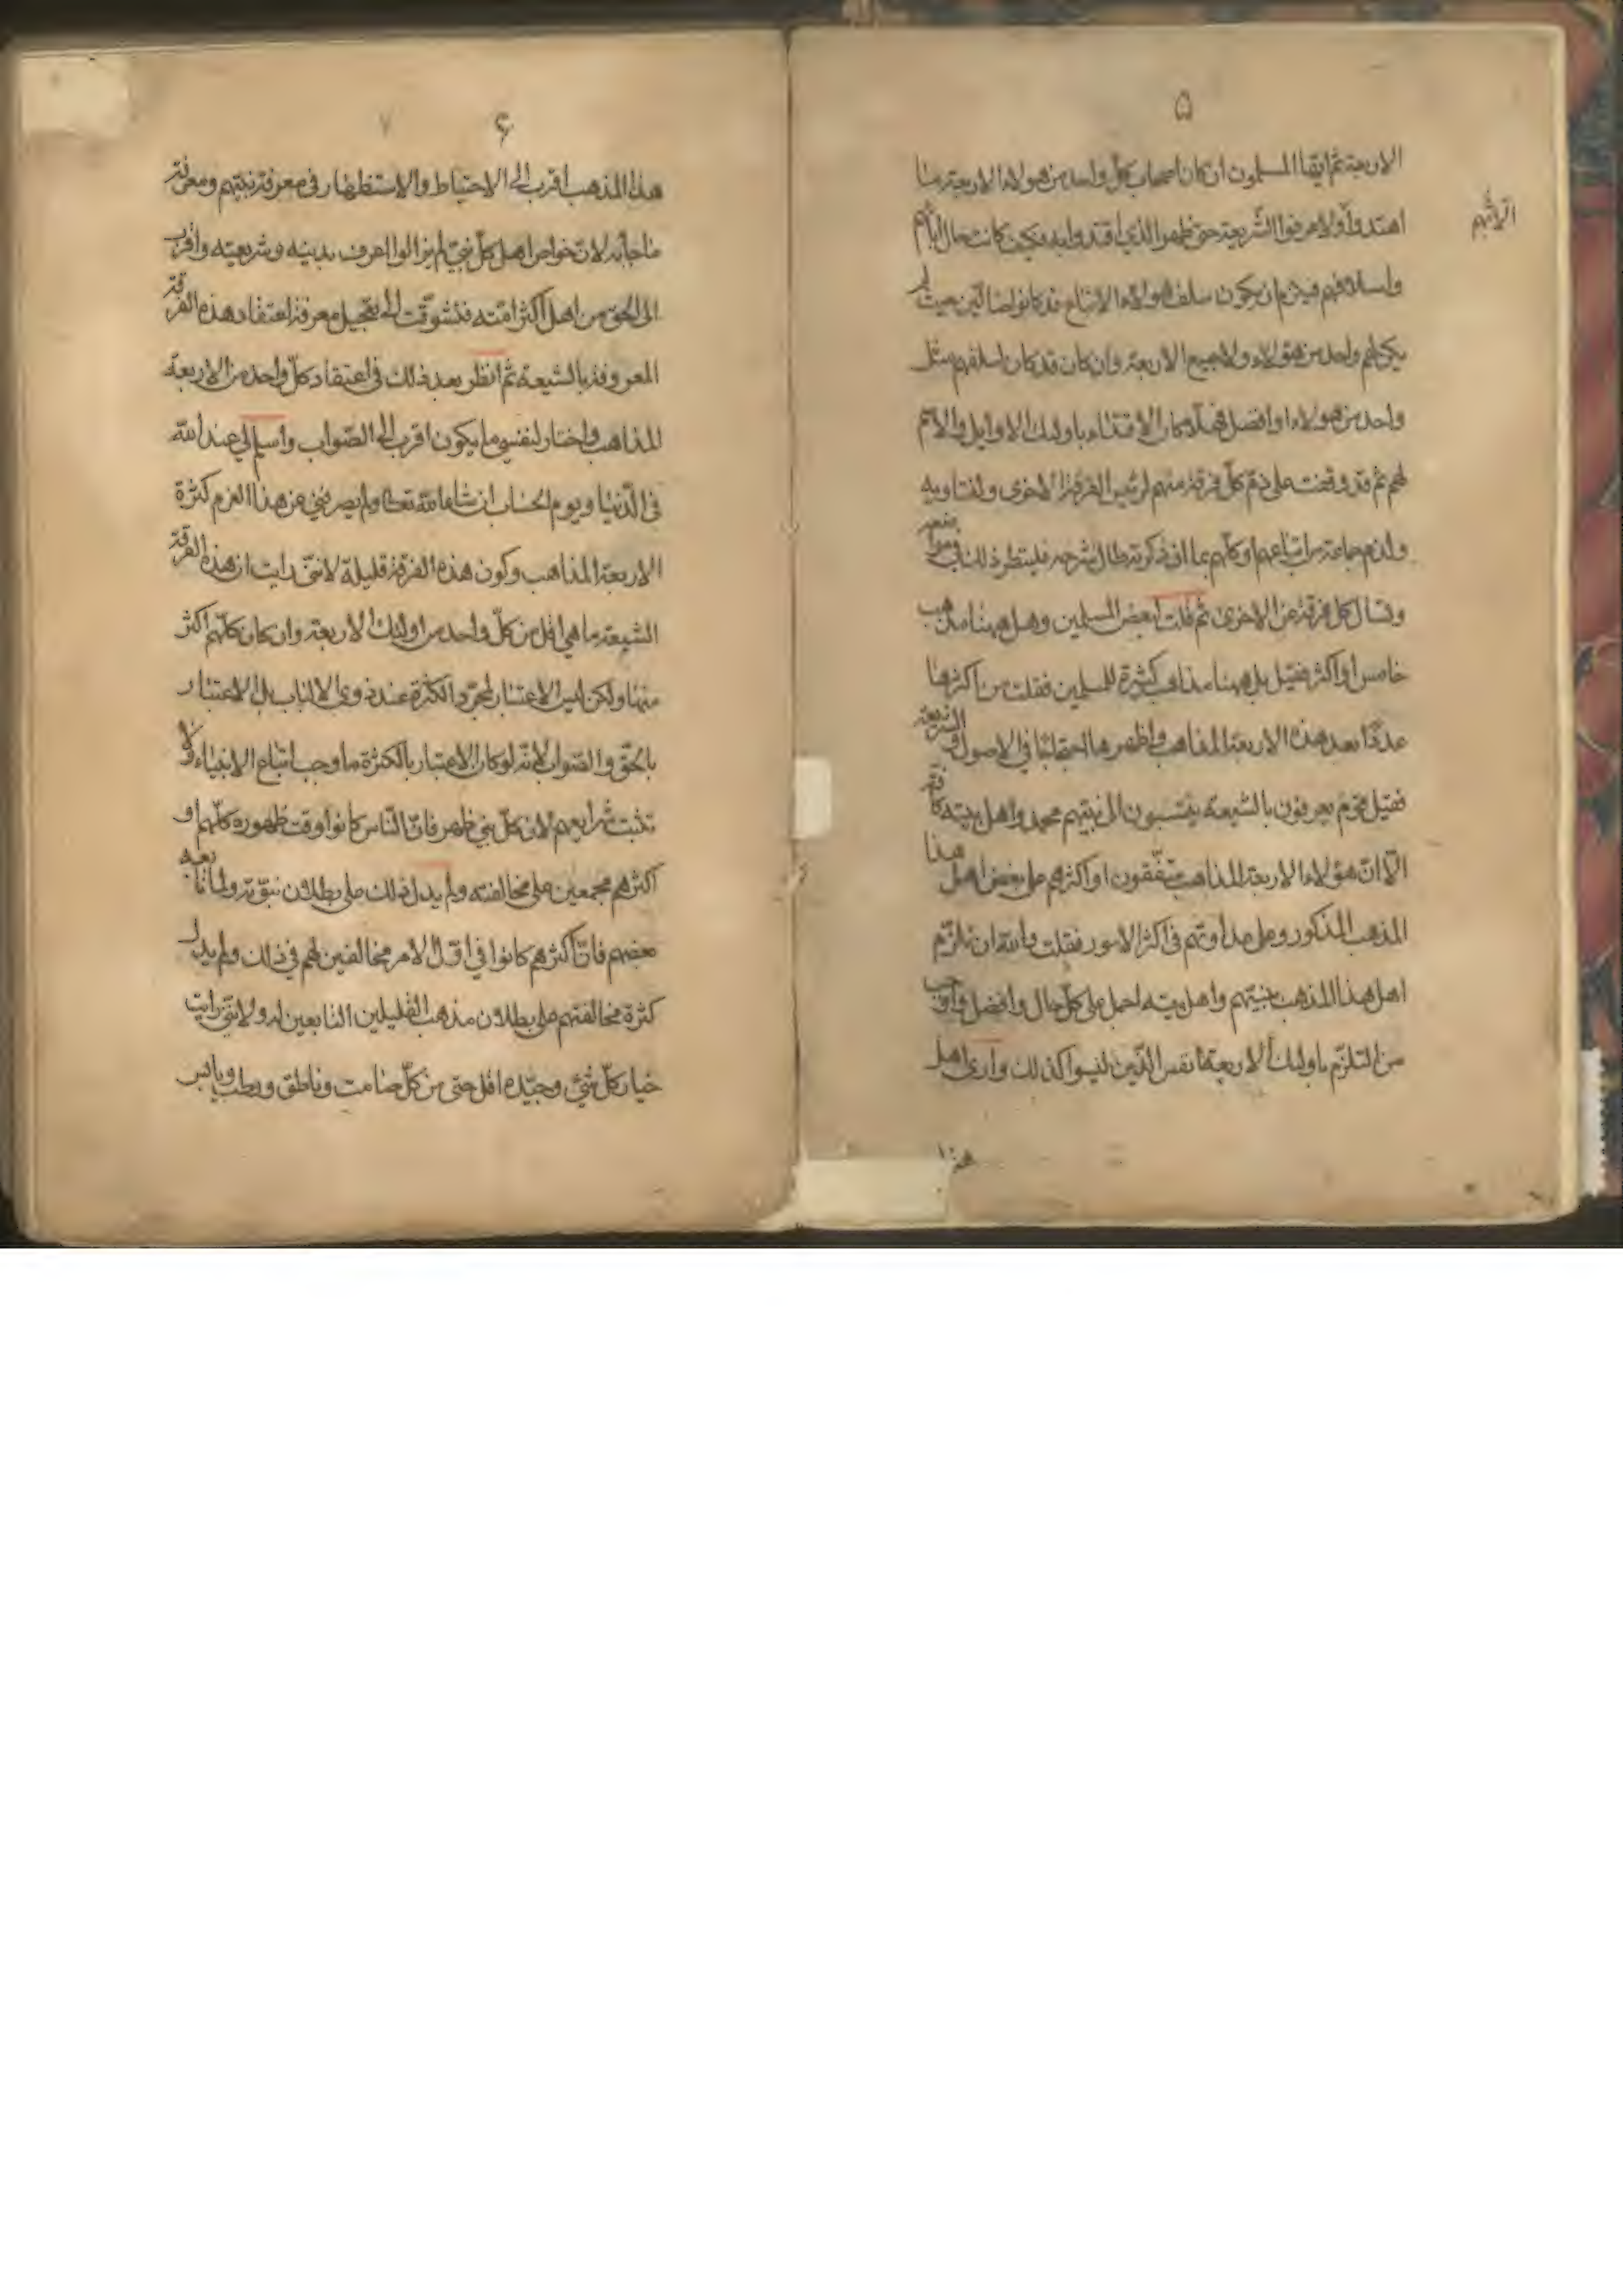 ۵
الاربعة ثم ايها المسلمون ان كان اصحاب كل واحد من هولاء الاربعة ما
اهتدوا ولا عرفوا الشريعة حتى ظهر الذي اقتدوا به فكيف كانت حال ابائهم
واسلافهم فيلزم ان يكون سلف هولاء الاتباع قد كانوا ضالين حيث لم
يكن لهم واحد من هؤلاء ولا جميع الاربعة وان كان قد كان لسلفهم مثل
واحد من هولاء او افضل فهلا كان الاقتداء باولئك الاوايل والاسم
لهم ثم قد وقفت على ذم كل فرقة منهم لرئيس الفرقة الاخرى ولفتاويه
ولذم جماعة من اتباعهم او كلهم بما ان ذكرته طال شرحه فلينظر ذلك في مواضعه
وتسال كل فرقة عن الاخرى ثم قلت لبعض المسلمين وهل ههنا مذهب
خامس او اكثر فقيل بل ههنا مذاهب كثيرة للمسلمين فقلت من اكثرها
عددا بعد هذه الاربعة المذاهب واظهرها احتجاجا في الاصول والشريعة
فقيل قوم يعرفون بالشيعة ينتسبون الى نبيهم محمد واهل بيته كافة
الا ان هؤلاء الاربعة المذاهب متفقون او اكثرهم على بغض اهل هذا
المذهب المذكور وعلى عداوتهم في اكثر الامور فقلت والله ان تلزم
اهل هذا المذهب بنبيهم واهل بيته اجمل على كل حال وافضل واوجب
من التلزم باولئك الاربعة الانفس الذين ليسوا كذلك وارى اهل
هذا
۶
هذا المذهب اقرب الى الاحتياط والاستظهار في معرفة نبيهم ومعرفة
ما جاء به لان خواص اهل كل نبي لم يزالوا اعرف بدينه وشريعته واقرب
الى الحق من اهل اكثر امته فتشوقت الى تعجيل معرفة اعتقاد هذه الفرقة
المعروفة بالشيعة ثم انظر بعد ذلك في اعتقاد كل واحد من الاربعة
المذاهب واختار لنفسي ما يكون اقرب الى الصواب واسلم لي عند الله
في الدنيا ويوم الحساب ان شاء الله تعالى ولم يصرفني عن هذا العزم كثرة
الاربعة المذاهب وكون هذه الفرقة قليلة لانني رايت ان هذه الفرقة
الشيعة ما هي اقل من كل واحد من اولئك الاربعة وان كان كلهم اكثر
منها ولكن ليس الاعتبار لمجرد الكثرة عند ذوى الالباب بل الاعتبار
بالحق والصواب لانه لو كان الاعتبار بالكثرة ما وجب اتباع الانبياء ولا
تثبت شرايعهم لان كل نبي ظهر فان الناس كانوا وقت ظهوره كلهم او
اكثرهم مجمعين على مخالفته ولم يدل ذلك على بطلان نبوته ولما تابعه
بعضهم فان اكثرهم كانوا في اول الامر مخالفين لهم في ذلك ولم يدل
كثرة مخالفتهم على بطلان مذهب القليلين التابعين له ولانني رايت
خيار كل شئ وجيده اقل حتى من كل صامت وناطق ورطب ويابس